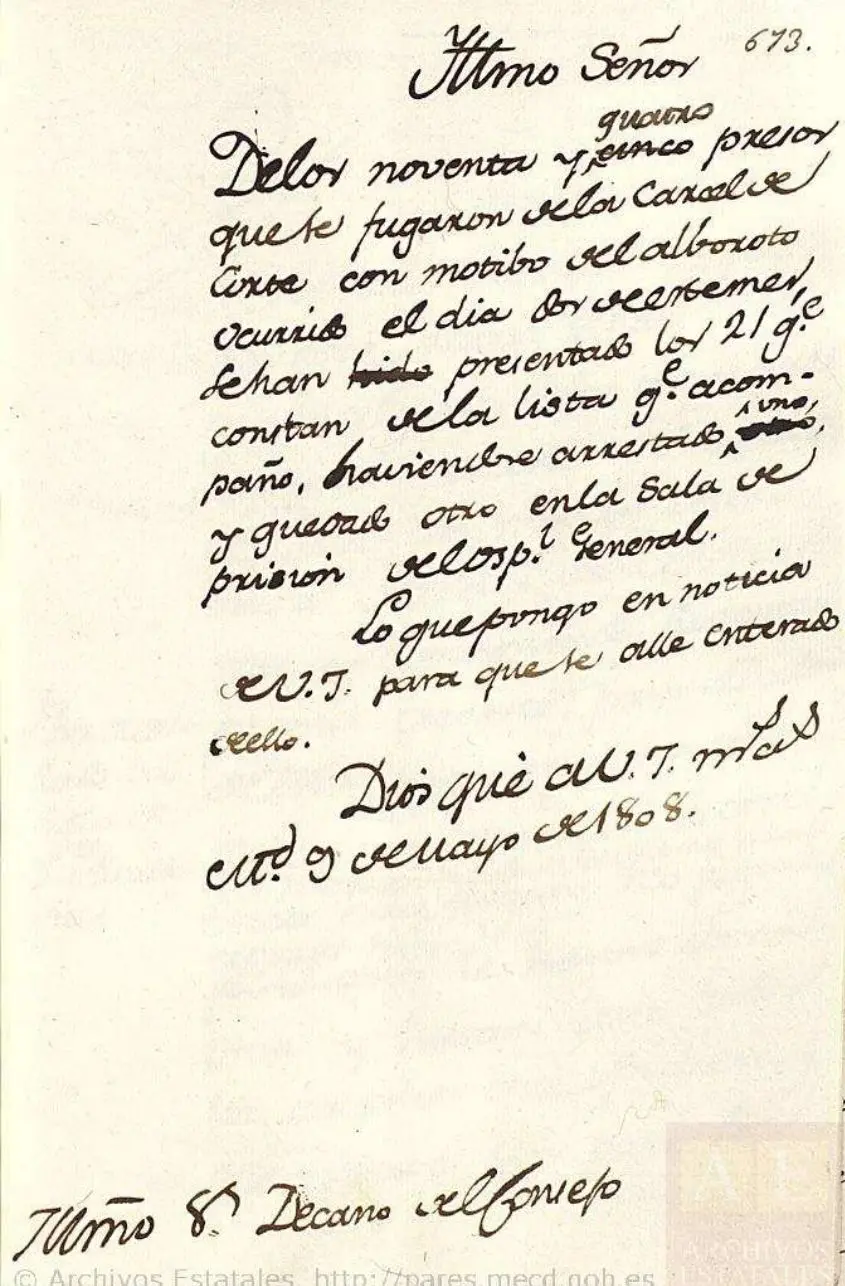 673.
Yllmo Señor
quatro
Delos noventa y cinco presos
que se fugaron dela Carcel de
Corte con motibo del alboroto
ocurrido el dia dos de este mes,
se han hido presentado los 21 q.e
constan dela lista q.e acom-
uno,
paño, haviendose arrestado otro,
y quedado otro en la Sala de
prision del Osp.l General.
Lo que pongo en noticia
de V. I. para que se alle enterado
de ello.
Dios gũe a V. I. m.s a.s
Md. 9 de Mayo de 1808.
Illm̃o S.r Decano del Consejo
© Archivos Estatales, http://pares.mecd.gob.es
AE
ARCHIVOS
ESTATALES